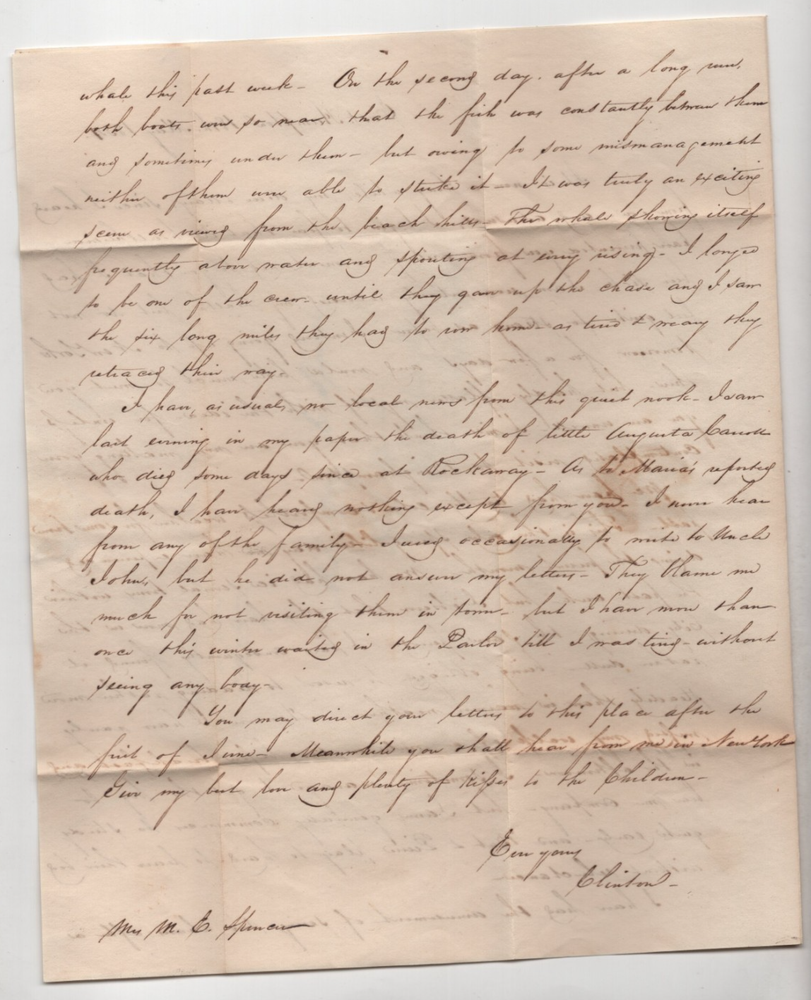 whale this past week - On the second day, after a long run,
both boats were so near, that the fish was constantly between them
and sometimes under them - but owing to some mismanagement
neither of them were able to strike it - It was truly an exciting
scene as viewed from the beach hills - The whale showing itself
frequently above water and spouting at every rising - I longed
to be one of the crew until they gave up the chase and I saw
the six long miles they had to row home - as tired & weary they
retraced their way -
I have, as usual, no local news from this quiet nook - I saw
last evening in my paper the death of little Augusta
who died some days since at Rockaway - As to Maria's reported
death, I have heard nothing except from you - I never hear
from any of the family - I used occasionally to write to Uncle
John, but he did not answer my letters - They blame me
much for not visiting them in town - but I have more than
once this winter waited in the Parlor till I was tired - without
seeing any body -
You may direct your letters to this place after the
first of June - Meanwhile you shall hear from me in New York
Give my best love and plenty of kisses to the Children -
Ever yours
Clinton -
Mrs M. E. Spencer